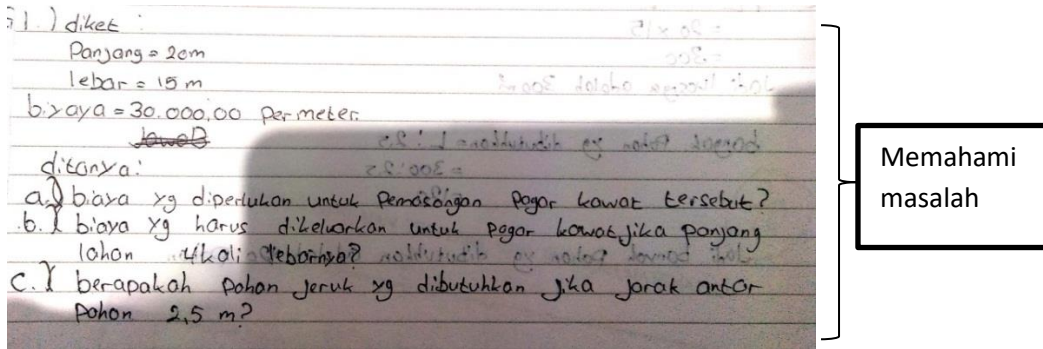 1.) diket :
Panjang = 20m
lebar = 15 m
biyaya = 30.000,00 Per meter
Jawab
ditanya:
a.) biaya yg diperlukan untuk Pemasangan Pagar kawat tersebut?
b.) biaya yg harus dikeluarkan untuk pagar kawat jika panjang
lahan 4 kali lebarnya?
C.) berapakah pohon jeruk yg dibutuhkan jika jarak antar
Pohon 2,5 m?
Memahami
masalah